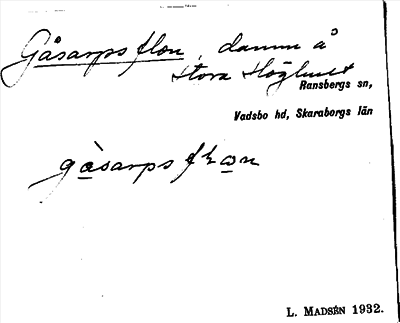 Gåsarps flon, damm å
Stora Höghult
Ransbergs sn,
Vadsbo hd, Skaraborgs län
gàsarps flɷn
L. MADSÉN 1932.